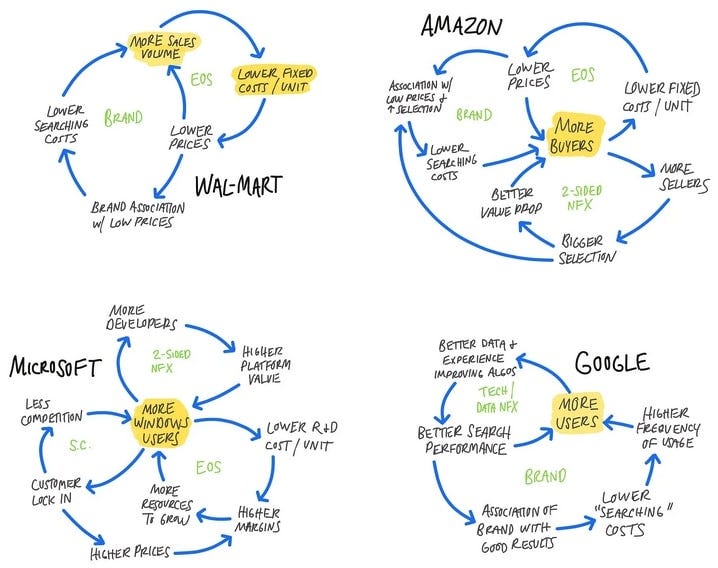 MORE SALES
VOLUME
EOS
LOWER FIXED
COSTS / UNIT
LOWER
SEARCHING
COSTS
BRAND
LOWER
PRICES
WAL-MART
BRAND ASSOCIATION
W/ LOW PRICES
AMAZON
LOWER
PRICES
EOS
ASSOCIATION W/
LOW PRICES &
↑ SELECTION
BRAND
LOWER FIXED
COSTS / UNIT
MORE
BUYERS
LOWER
SEARCHING
COSTS
BETTER
VALUE PROP
2-SIDED
NFX
MORE
SELLERS
BIGGER
SELECTION
MICROSOFT
MORE
DEVELOPERS
2-SIDED
NFX
HIGHER
PLATFORM
VALUE
LESS
COMPETITION
MORE
WINDOWS
USERS
S.C.
LOWER R+D
COST / UNIT
EOS
CUSTOMER
LOCK IN
MORE
RESOURCES
TO GROW
HIGHER
MARGINS
HIGHER PRICES
GOOGLE
BETTER DATA &
EXPERIENCE
IMPROVING ALGOS
TECH /
DATA NFX
MORE
USERS
HIGHER
FREQUENCY
OF USAGE
BETTER SEARCH
PERFORMANCE
BRAND
ASSOCIATION OF
BRAND WITH
GOOD RESULTS
LOWER
"SEARCHING"
COSTS